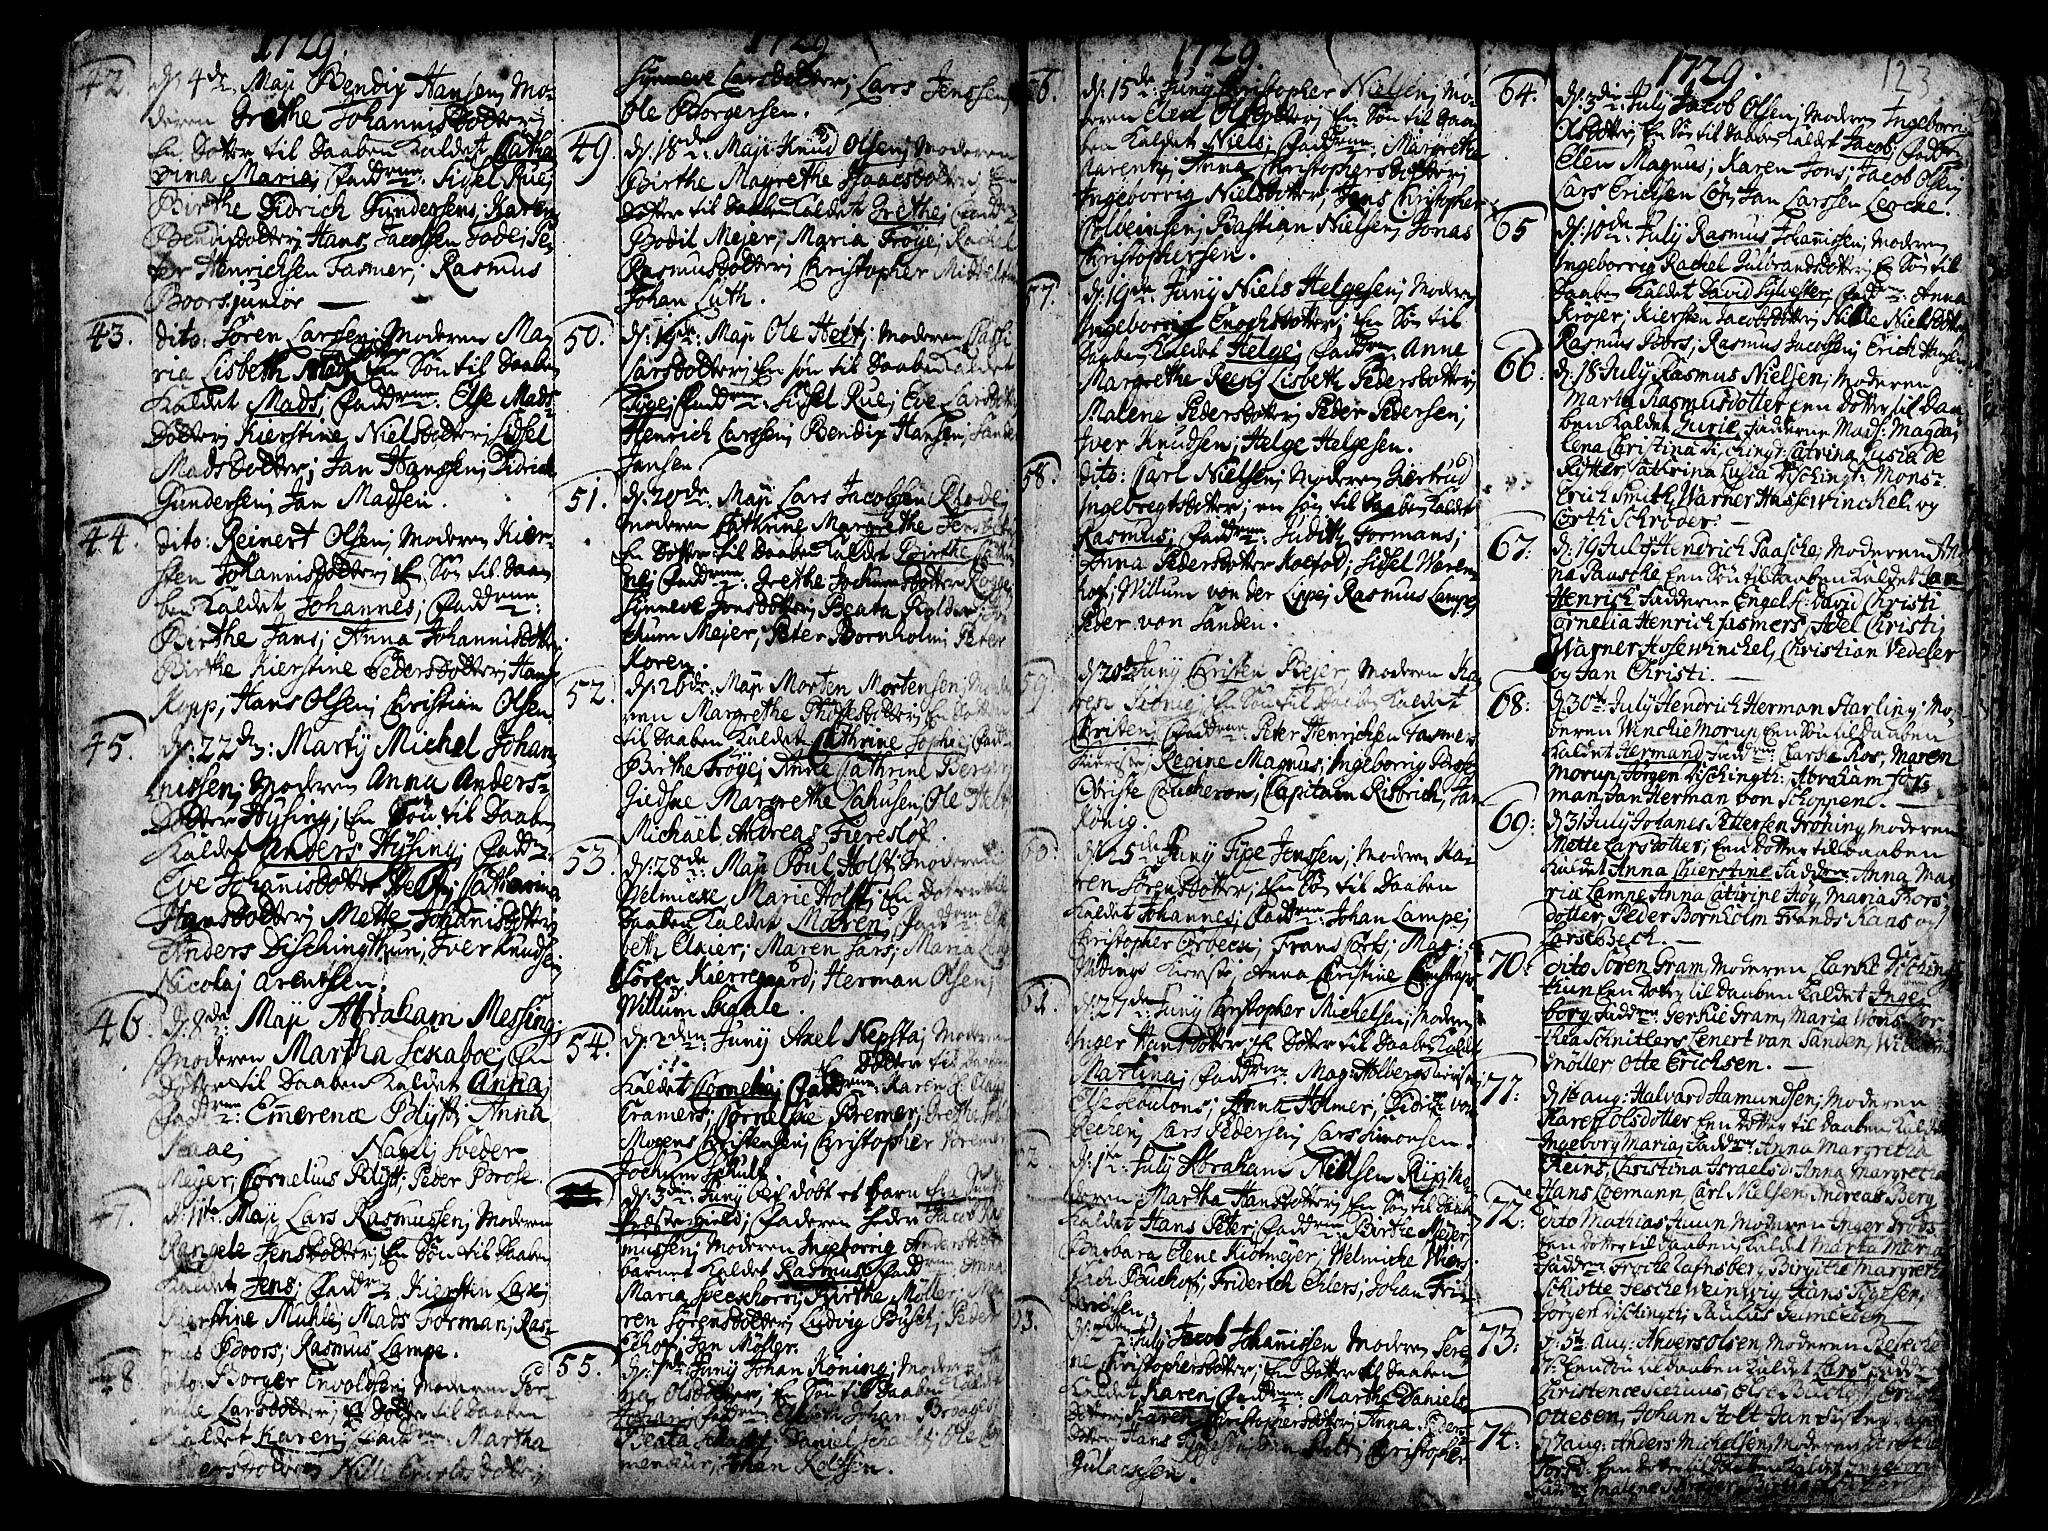 1729.
42.
d. 4de Maji Bendix Hansen; Mo-
deren Grethe Johannisdotter;
En Dotter til Daaben kaldet Catha
rina Maria; Faddrene: Sidsel Rue;
Birthe Didrich Gundersens; Karen
Bendixdotter; Hans Jacobsen Fade; Pe-
ter Henrichsen Fasmer; Rasmus
Boors junior
43.
dito: Søren Larsen; Moderen Ma
ria Lisbeth En Søn til Daaben
kaldet Mads; Faddrene: Else Mads-
dotter; Kierstine Nielsdotter; Sidsel
Madsdotter; Jan Hanssen; Didrich
Gundersen; Jan Madsen.
44.
dito: Reinert Olsen; Moderen Kier-
sten Johannisdotter; En Søn til Daa
ben kaldet Johannes; Faddrene:
Birthe Jans; Anna Johannisdotter
Birthe Kierstine Pedersdotter; Hans
Kopp, Hans Olsen; Christian Olsen.
45.
d. 22de: Martij Michel Johan
nissen; Moderen Anna Anders-
dotter Hysing; En Søn til Daaben
kaldet Anders Hysing; Faddrene
Eve Johannisdotter Catharina
Hansdotter; Mette Johannisdotter
Anders Dischingthun; Iver Knudsen
Nicolaj Arentsen.
46.
d. 8de: Maji Abraham Messing;
Moderen Martha Schaboe; En
Dotter til Daaben kaldet Anna;
Faddrene: Emerence Blytt; Anna
Nagel; Sveder
Meyer; Cornelius Blytt; Peder Brose.
47.
d. 11te: Maji Lars Rasmussen; Moderen
Rangele Jensdotter; En Søn til Daaben
kaldet Jens; Faddrene: Kiersten Laxe;
Kierstine Muhle; Mads Forman; Ras-
mus Boors; Rasmus Lampe.
48
dito: Borger Envoldsen; Moderen Per-
nille Larsdotter; En Dotter til Daaben
kaldet Karen; Faddrene: Martha
Nille Envoldsdotter;
1729
Synneve Larsdotter; Lars Jenssen;
Ole Borgersen.
49.
d. 18de: Maji Knud Olsen; Moderen
Birthe Magrethe Isaacsdotter; En
Dotter til Daaben kaldet Grethe; Faddrene
Bodil Mejer; Maria Frøye; Rachel
Rasmusdotter; Christopher Mickelsen
Johan Luth.
50.
d. 19de: Maji Ole Helt; Moderen
Larsdotter; En søn til Daaben kaldet
Tyge; Faddrene: Sidsel Rue; Eve Larsdotter
Henrich Larssen; Bendix Hansen; Sander
Jansen
51.
d. 20de: Maji Lars Jacobsen Rhode;
Moderen Cathrine Margrethe Jensdotter
En Dotter til Daaben kaldet Birthe
Faddrene: Grethe Jochumsdotter Kogge
Synneve Jonsdotter; Beata Giølder; Jo-
chum Mejer; Peter Bornholm; Peter
Koren.
52.
d. 26de: Maji Morten Mortensen; Mode
ren Margrethe En Dotter
til Daaben kaldet Cathrine Sophie; Fadd-
Birthe Frøye; Anne Cathrine Berger
Giedske Margrethe Sahusen; Ole Helt
Michael Andreas Fiereslof.
53
d. 28de: Maji Poul Holst; Moderen
Velmicke Marie Holst; En Dotter til
Daaben kaldet Maren; Faddrene: Elisa
beth Claier; Maren Fars; Maria
Søren Kierregaard; Herman Olsen;
Willum Skaale.
54.
d. 2den: Junij Axel Nepsta; Moderen
En Dotter til Daaben
kaldet Cornelia; Faddrene: Karen
Cramers; Cornelske Bremer;
Mogens Christensen; Christopher Bremer
Jochum Schult.
d. 3de: Junij blef døbt et barn fra
Præstegield; Faderen heder Jacob Ras-
mussen; Moderen Ingeborrig Andersdotter
barnet kaldet Rasmus Fadd
Maria Speeckhorn; Birthe Møller; Ma-
ren Sørensdotter; Ludvig Busch; Peder
Jan Møller.
55.
d. 7de: Junij Johan Koning; Moderen An
na Olsdotter; En Søn til Daaben kaldet
Johan Faddrene:
Beata Schacht; Daniel Schacht; Ole
mandeur; Johan Rolssen.
1729.
56.
d. 15de: Junij Christopher Nielsen; Mo-
deren Elen Olsdotter; En Søn til Daa
ben kaldet Niels; Faddrene: Margrethe
Narents; Anna Christophersdotter;
Ingeborrig Nielsdotter; Jens Christopher
Colbeinsen; Bastian Nielsen; Jonas
Christophersen.
57.
d. 19de: Junij Niels Helgesen; Moderen
Ingeborrig Enochsdotter; En Søn til
Daaben kaldet Helge; Faddrene: Anne
Margrethe Reen; Lisbeth Pedersdotter;
Malene Pedersdotter; Peder Pedersen;
Iver Knudsen; Helge Helgesen.
58.
dito: Carl Nielsen; Moderen Giertrud
Ingebregtsdotter; en søn til Daaben kaldet
Rasmus; Faddrene: Judith Formans;
Anna Pedersdotter Kolstod; Sidsel Waren-
hof; Willum von der Lippe; Rasmus Lampe
Peder von Sanden.
59.
d. 20de Junij Christen Bejer Moderen Ka-
ren Konig; En Søn til Daaben kaldet
Christen; Faddrene: Peter Henrichsen Fasmers
Kierste; Regine Magnus; Ingeborrig
Christe Coucheron; Capitain Risbrich; Jan
König.
60.
d. 25de Junij Tyge Jenssen; Moderen Ka-
ren Sørensdotter; En Søn til Daaben
kaldet Johannes; Faddrene: Johan Lampe;
Christopher Ørbeck; Frans Mag:
Kierste; Anna Christine
61.
d. 27de Junij Christopher Michelsen; Moderen
Inger Hansdotter; En Dotter til Daaben kaldet
Martina; Faddrene: Mag: Holbergs kierste
Anna Holmer; Didrich von
Leeren; Lars Pedersen; Lars Simonsen.
62
d. 1te: Julij Abraham Nielsen Mo-
deren Martha Hansdotter; En Søn til Daaben
kaldet Hans Peter; Faddrene: Bertie Mejer;
Barbara Elene Kiøtmejer; Velmicke Wiers
Sach Buchof; Friderich Ehlers; Johan Frid-
richsen.
63.
d. 2den: Julij: Jacob Johannissen Moderen Sere
ne Christophersdotter; En Dotter til Daaben
kaldet Karen; Faddrene: Marthe Daniels
dotter; Karen Christophersdotter; Anna Peders-
dotter Hans Christopher
Gulacksen.
1729.
123
64.
d. 3de: Julij Jacob Olsen; Moderen Ingeborrig
Olsdotter; En Søn til Daaben kaldet Jacob; Faddr:
Elen Magnus; Karen Jons; Jacob Olsen;
Lars Ericksen Løs; Jan Larssen Lercke.
65
d. 10de: Julij Rasmus Johannissen; Moderen
Ingeborrig Rachel Guldbrandsdotter; En Søn til
Daaben kaldet David Sylvester; Faddrene: Anna
Krøger; Kiersten Jacobsdotter; Nille Nielsdotter
Rasmus Boors; Rasmus Jacobsen; Erich Hansen
66:
d. 18 July Rasmus Nielsen; Moderen
Marta Rasmusdotter een dotter til Daa
ben kaldet Jurie Fadderne Mads: Magda
lena Christina Dischingt: Catrina Lusia de
Røtter Catrina Lusia Dischingt: Mons:
Erich Smith Warner Hassewinckel og
Corth Schrøder. —
67:
d. 19 July Hendrich Paasche, Moderen An
na Pausche Een Søn til Daaben kaldet Jan
Henrich Fadderne Engels: David Christi
Cornelia Henrich Fasmers, Abel Christi
Warner Hosewinckel, Christian Vedeler
og Jan Christi. —
68:
d. 30te July Hendrich Herman Starling; Mo-
deren Winckie Morup Een Søn til Daaben
kaldet Hermand Fadd: Larske Ros, Maren
Morup, Jørgen Dischingth: Abraham For-
man, Jan Herman von Schoppen. —
69:
d. 31 July Johanes Pettersen Grøning, Moderen
Mette Larsdotter; Een Dotter til Daaben
kaldet Anna Chierstine Fadderne Anna Ma
ria Lampe Anna Catirine Høy, Maria Thors
dotter Peder Bornholm Frands Kaas og
Lars Bech. —
70:
dito Søren Gram, Moderen Larke Disching
thun Een dotter til Daaben kaldet Inge
borg Fadderne Gerkie Gram, Maria Wons Dor-
thea Schnitlers Lenert van Sanden, Willum
Møller Otte Erichsen. —
71:
d. 1te aug: Halvard Hamundsen; Moderen
Karen Olsdotter Een dotter til Daaben kaldet
Ingeborg Maria; Fadderne Anna Margretha
Reins, Christina Israelsd: Anna Margretha
Hans Loemann Carl Nielsen, Andreas Berg
72:
dito Mathias Huun Moderen Inger
een dotter til Daaben kaldet Marta Maria
Fadderne Birgitte Margreta
Schiøtte Hans Tygesen,
Jørgen Dischingt: Paulus
73.
d. 5te aug: Anders Olsen, Moderen Rebecke
Een Søn til Daaben kaldet Lars Fadder
Christence Else
Ottesen, Johan Stolt Jan
74:
d. aug: Anders Michelsen, Moderen Birethe
Een dotter til Daaben kaldet Ingeborg
Faddrene Malene